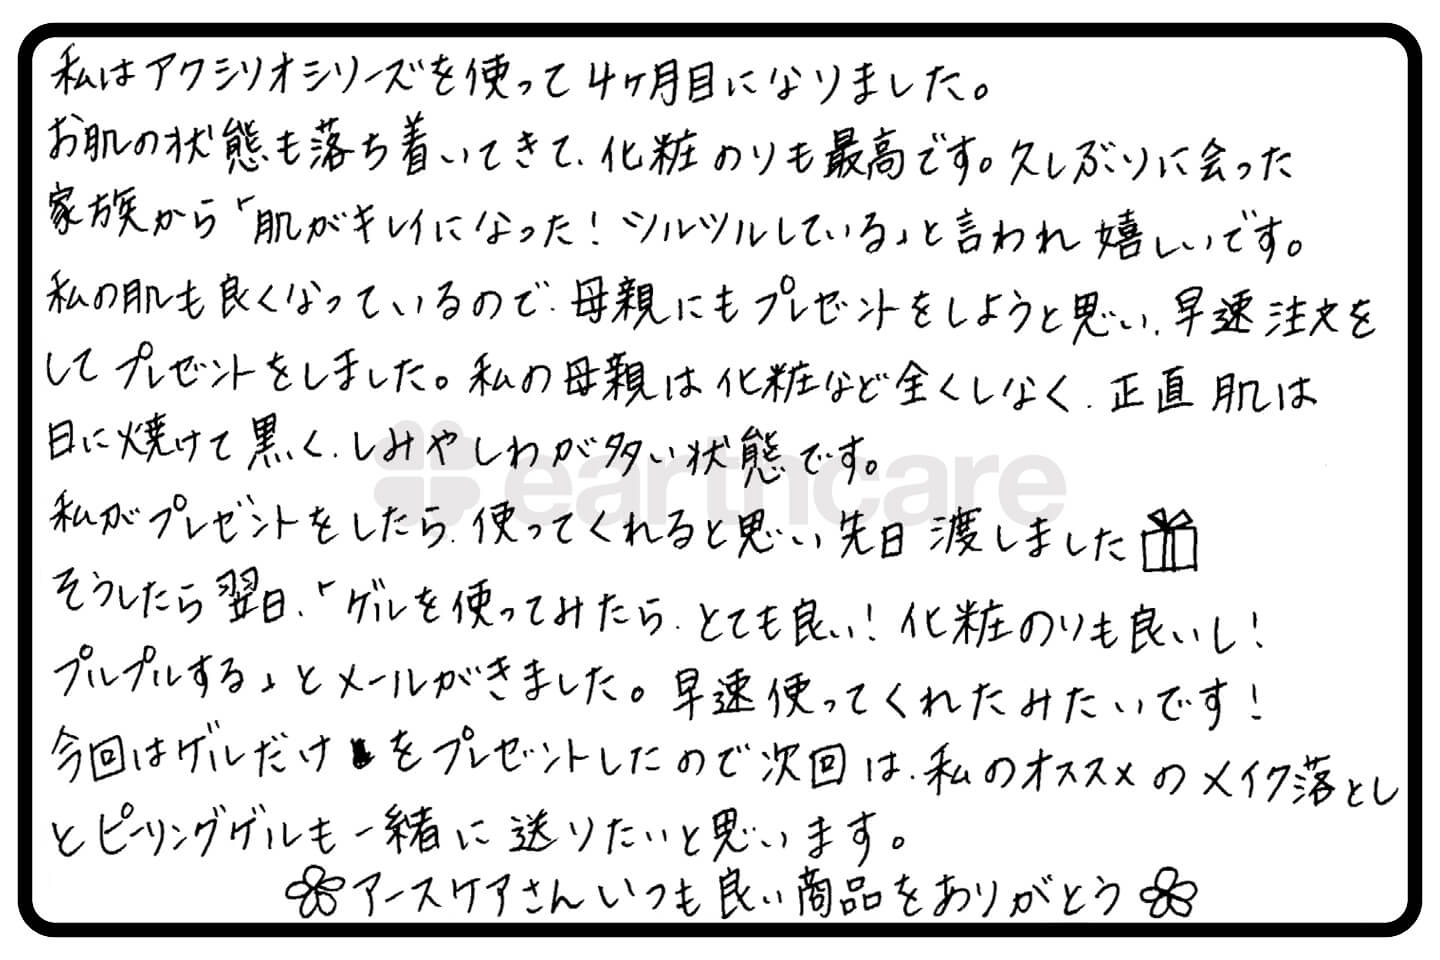 私はアクシリオシリーズを使って4ヶ月目になりました。
お肌の状態も落ち着いてきて、化粧のりも最高です。久しぶりに会った
家族から「肌がキレイになった!ツルツルしている」と言われ嬉しいです。
私の肌も良くなっているので、母親にもプレゼントをしようと思い、早速注文を
してプレゼントをしました。私の母親は化粧など全くしなく、正直肌は
日に焼けて黒く、しみやしわが多い状態です。
earthcare
私がプレゼントをしたら、使ってくれると思い先日渡しました
そうしたら翌日、「ゲルを使ってみたら、とても良い!化粧のりも良いし!
プルプルする」とメールがきました。早速使ってくれたみたいです!
今回はゲルだけをプレゼントしたので次回は、私のオススメのメイク落とし
とピーリングゲルも一緒に送りたいと思います。
アースケアさんいつも良い商品をありがとう